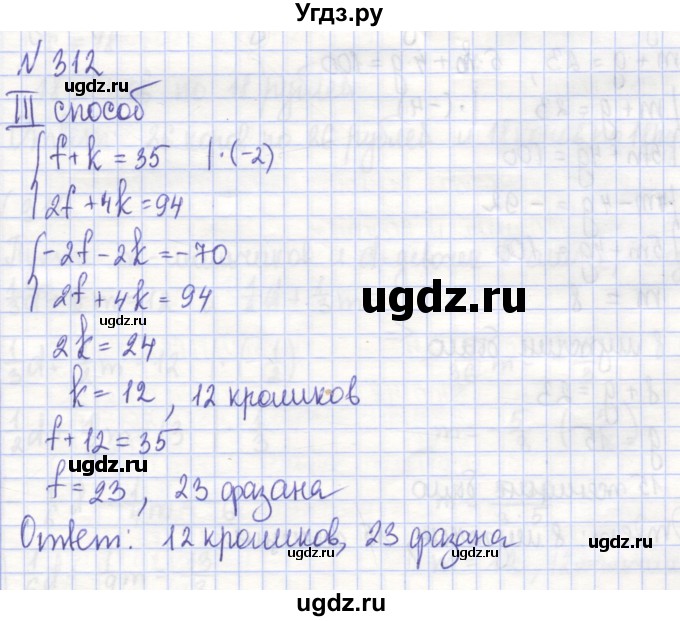 Угдз.ру
N 312
ugdz.ru
III способ
f+k=35 |·(-2)
ugdz.ru
2f+4k=94
-2f-2k=-70
2f+4k=94
ugdz.ru
ugdz.ru
2k=24
k=12, 12 кроликов
f+12=35
ugdz.ru
f=23, 23 фазана
Ответ: 12 кроликов, 23 фазана
ugdz.ru ugdz.ru ugdz.ru
ugdz.ru